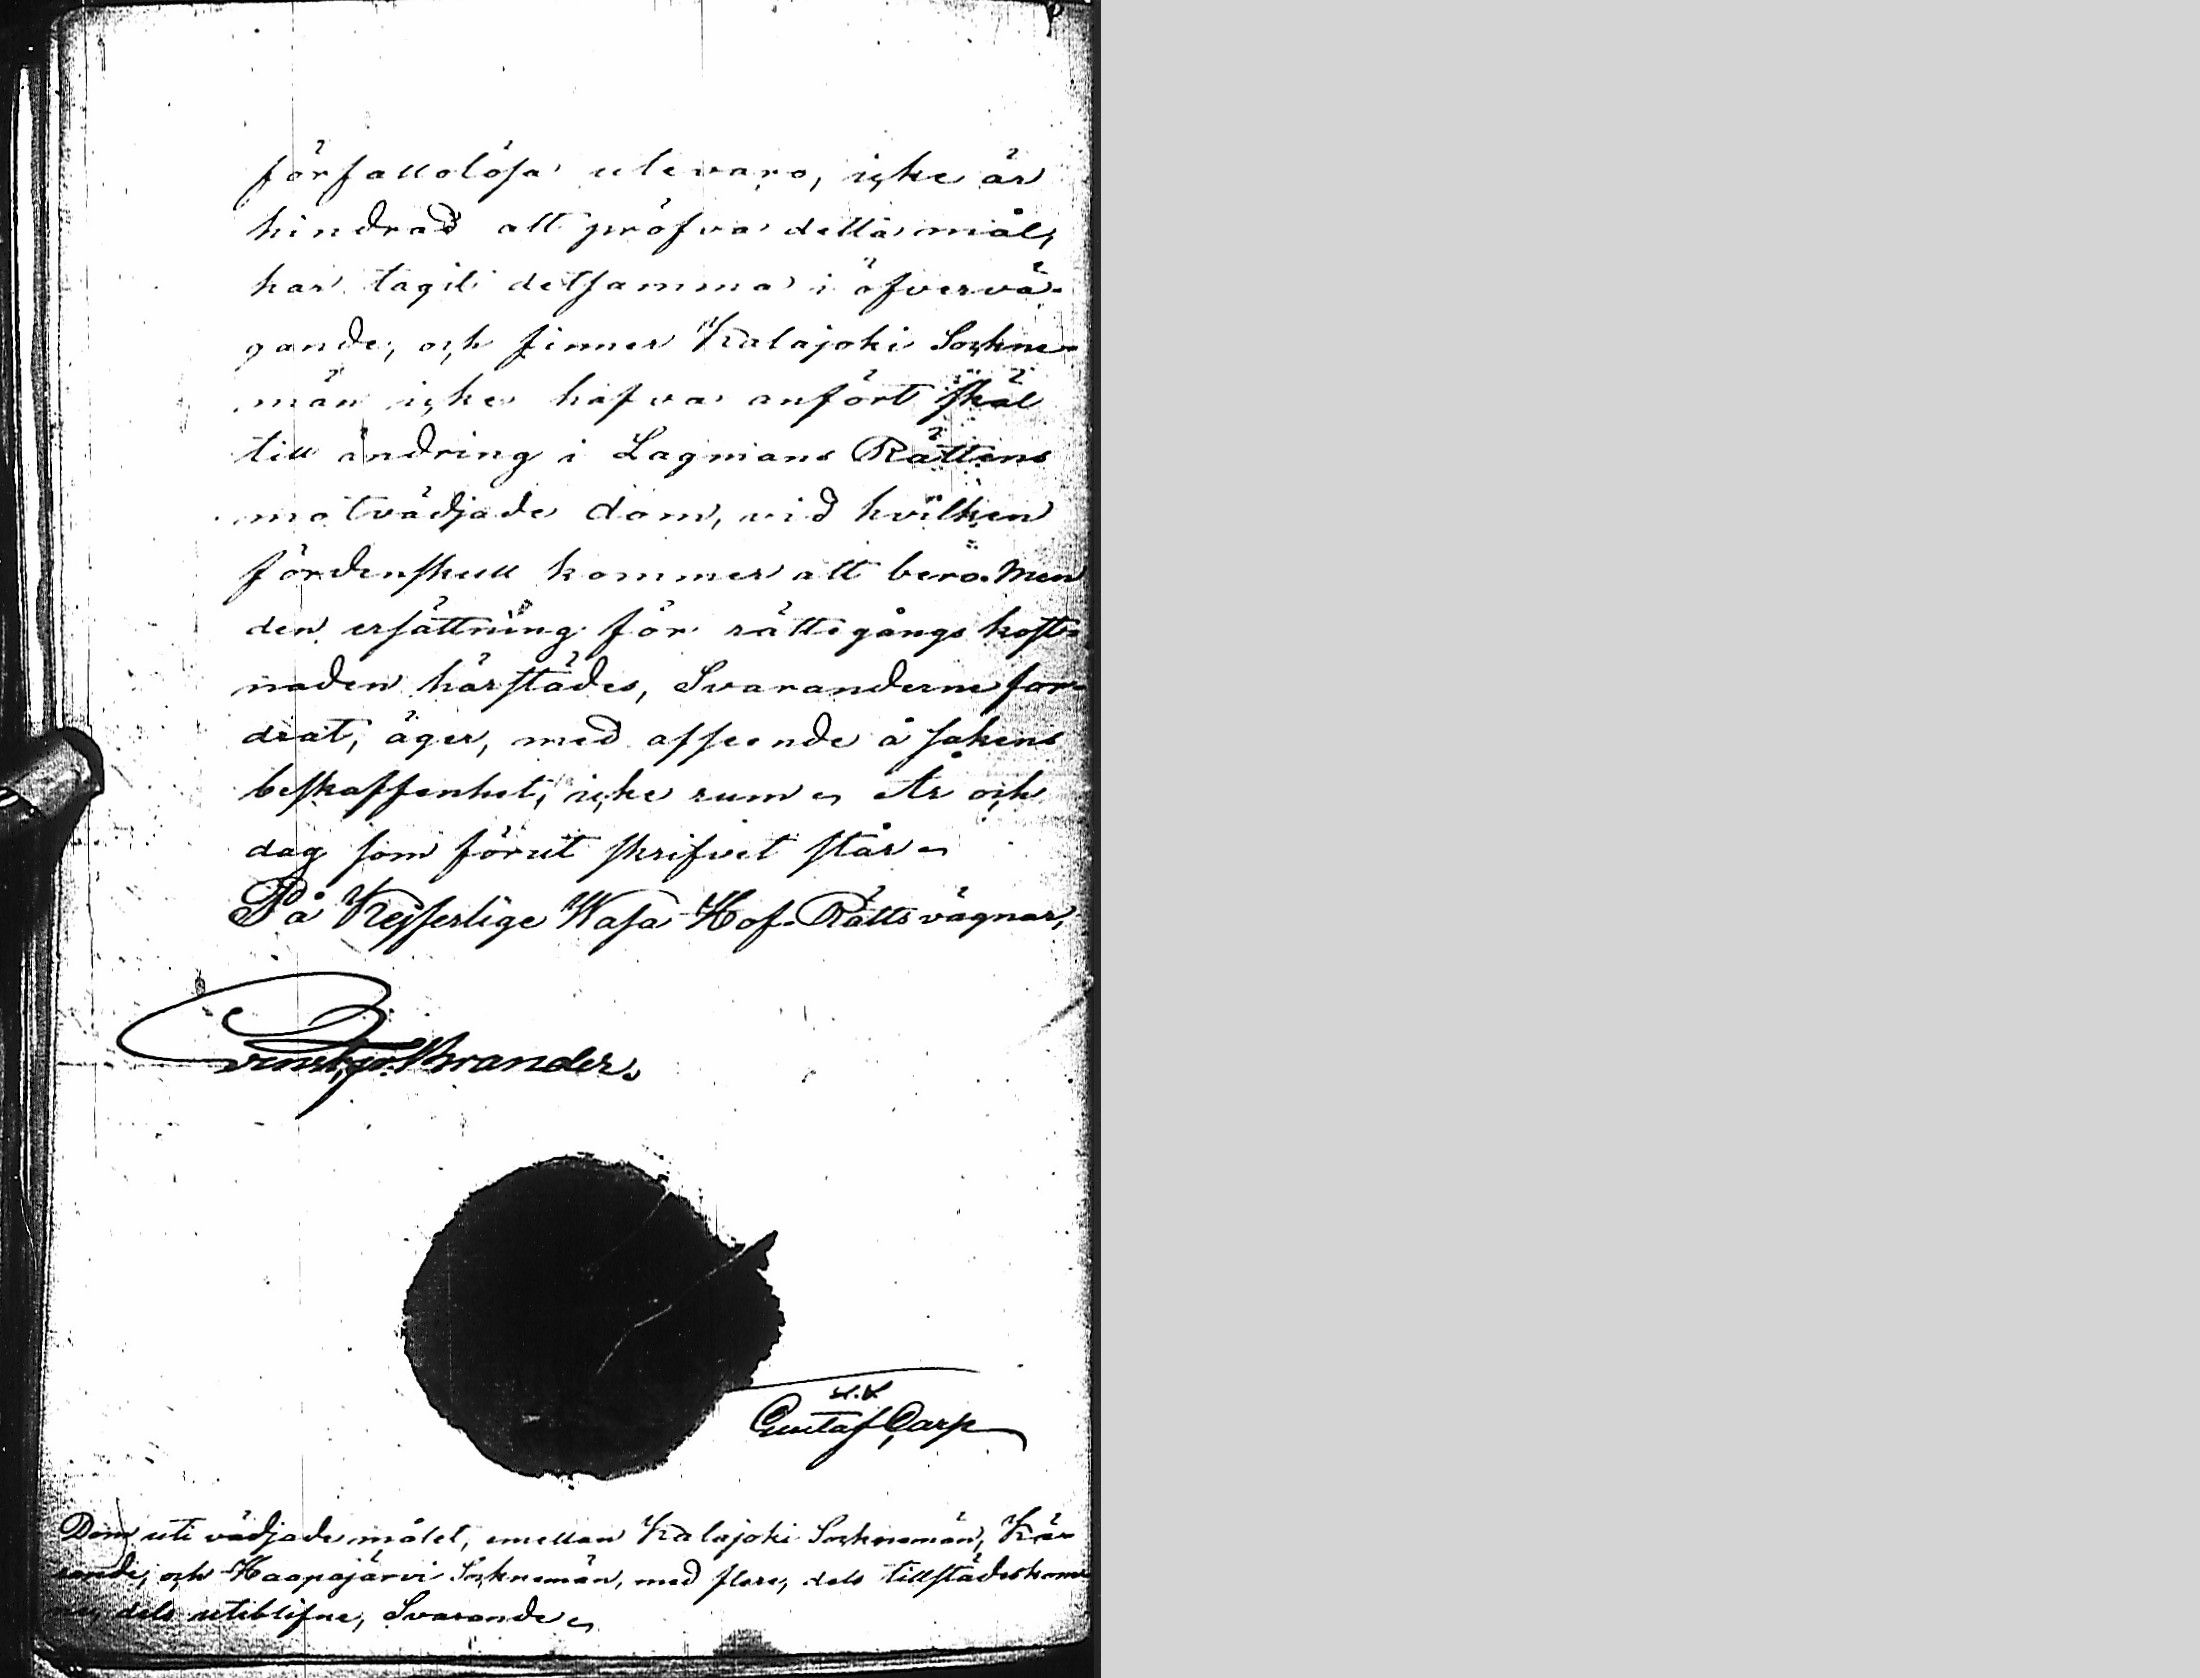 förfallolösa utevaro, icke är
hindrad att pröfva detta mål,
har tagit detsamma i öfvervä-
gande, och finner Kalajoki Sockne-
män icke hafva anfört skäl
till ändring i Lagmans Rättens
motvädjade dom, vid hvilken
fördenskull kommer att bero. Men
den ersättning för rättegångs kost-
naden härstädes, Svaranderne for-
drat, äger, med afseende å sakens
beskaffenhet, icke rum. År och
dag som förut skrifvet står.
På Kejserlige Wasa Hof-Rätts vägnar,
Brander.
Gustaf Carp
Dom uti vädjade målet, emellan Kalajoki Socknemän, Kär-
rande, och Haapajärvi Socknemän, med flere, dels tillstädeskom-
ne, dels uteblifne, Svarande.